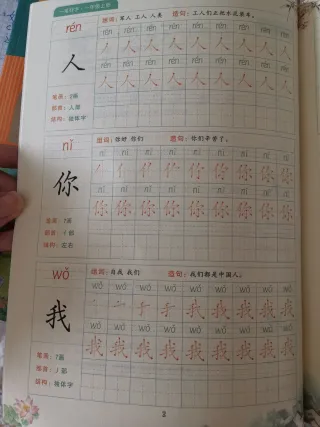 一年级上册
rén 组词: 工人 造句: 工人们
rén rén rén rén rén rén rén rén
人 人 人 人 人 人 人
人
rén rén rén rén rén rén rén rén
人 人 人 人 人 人 人 人
笔画: 2画
部首: 人部
结构: 独体字
nǐ 组词: 你好 你们 造句: 你们辛苦了。
nǐ nǐ nǐ nǐ nǐ nǐ nǐ nǐ
你 你 你 你
你
nǐ nǐ nǐ nǐ nǐ nǐ nǐ nǐ
你 你 你 你 你 你 你 你
笔画: 7画
部首: 亻部
结构: 左右
wǒ 组词: 自我 我们 造句: 我们都是中国人。
wǒ wǒ wǒ wǒ wǒ wǒ wǒ wǒ
我 我 我
我
wǒ wǒ wǒ wǒ wǒ wǒ wǒ wǒ
我 我 我 我 我 我 我 我
笔画: 7画
部首: 丿部
结构: 独体字
2